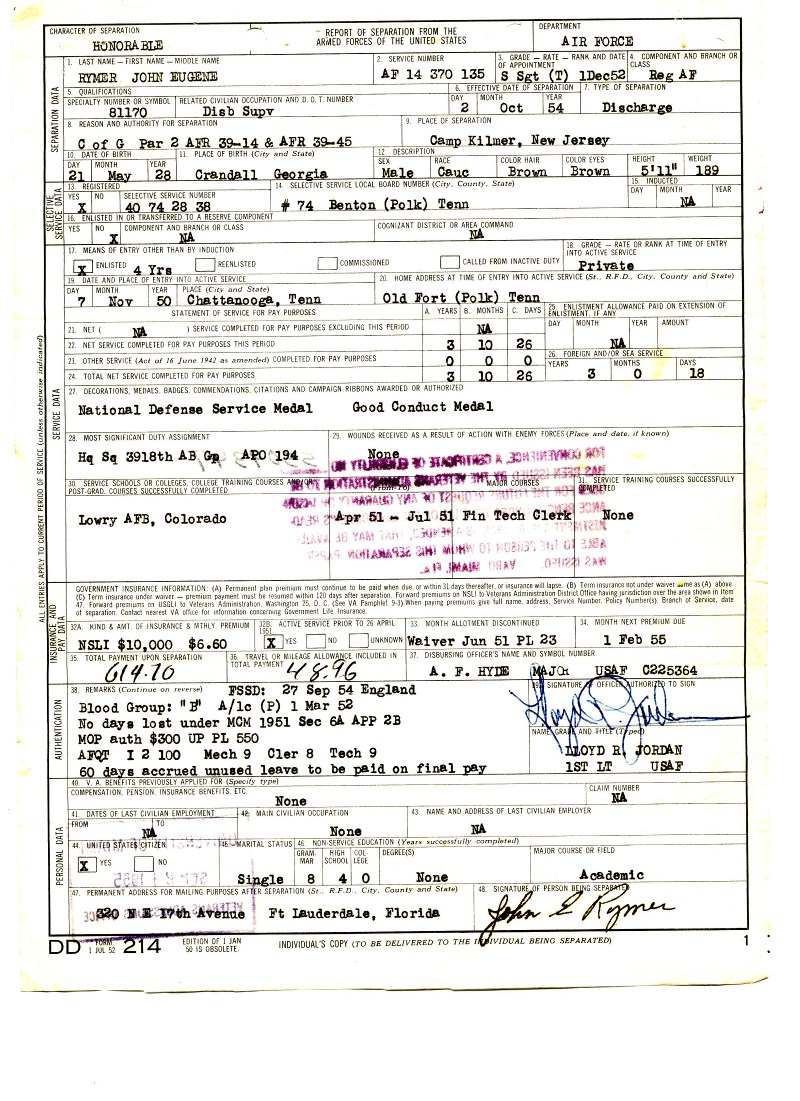 CHARACTER OF SEPARATION
HONORABLE
REPORT OF SEPARATION FROM THE
ARMED FORCES OF THE UNITED STATES
DEPARTMENT
AIR FORCE
SEPARATION DATA
1. LAST NAME — FIRST NAME — MIDDLE NAME
RYMER JOHN EUGENE
2. SERVICE NUMBER
AF 14 370 135
3. GRADE — RATE — RANK AND DATE OF APPOINTMENT
S Sgt (T) 1Dec52
4. COMPONENT AND BRANCH OR CLASS
Reg AF
5. QUALIFICATIONS
SPECIALTY NUMBER OR SYMBOL
81170
RELATED CIVILIAN OCCUPATION AND D. O. T. NUMBER
Disb Supv
6. EFFECTIVE DATE OF SEPARATION
DAY MONTH YEAR
2 Oct 54
7. TYPE OF SEPARATION
Discharge
8. REASON AND AUTHORITY FOR SEPARATION
C of G Par 2 AFR 39-14 & AFR 39-45
9. PLACE OF SEPARATION
Camp Kilmer, New Jersey
10. DATE OF BIRTH
DAY MONTH YEAR
21 May 28
11. PLACE OF BIRTH (City and State)
Crandall Georgia
12. DESCRIPTION
SEX RACE COLOR HAIR COLOR EYES HEIGHT WEIGHT
Male Cauc Brown Brown 5'11" 189
SELECTIVE SERVICE DATA
13. REGISTERED
YES NO SELECTIVE SERVICE NUMBER
X 40 74 28 38
14. SELECTIVE SERVICE LOCAL BOARD NUMBER (City, County, State)
# 74 Benton (Polk) Tenn
15. INDUCTED
DAY MONTH YEAR
NA
16. ENLISTED IN OR TRANSFERRED TO A RESERVE COMPONENT
YES NO COMPONENT AND BRANCH OR CLASS
X NA
COGNIZANT DISTRICT OR AREA COMMAND
NA
ALL ENTRIES APPLY TO CURRENT PERIOD OF SERVICE (unless otherwise indicated)
SERVICE DATA
17. MEANS OF ENTRY OTHER THAN BY INDUCTION
X ENLISTED 4 Yrs REENLISTED COMMISSIONED CALLED FROM INACTIVE DUTY
18. GRADE — RATE OR RANK AT TIME OF ENTRY INTO ACTIVE SERVICE
Private
19. DATE AND PLACE OF ENTRY INTO ACTIVE SERVICE
DAY MONTH YEAR PLACE (City and State)
7 Nov 50 Chattanooga, Tenn
20. HOME ADDRESS AT TIME OF ENTRY INTO ACTIVE SERVICE (St., R.F.D., City, County and State)
Old Fort (Polk) Tenn
STATEMENT OF SERVICE FOR PAY PURPOSES
A. YEARS B. MONTHS C. DAYS
25. ENLISTMENT ALLOWANCE PAID ON EXTENSION OF ENLISTMENT, IF ANY
DAY MONTH YEAR AMOUNT
NA
21. NET ( NA ) SERVICE COMPLETED FOR PAY PURPOSES EXCLUDING THIS PERIOD
NA
22. NET SERVICE COMPLETED FOR PAY PURPOSES THIS PERIOD
3 10 26
23. OTHER SERVICE (Act of 16 June 1942 as amended) COMPLETED FOR PAY PURPOSES
0 0 0
26. FOREIGN AND/OR SEA SERVICE
YEARS MONTHS DAYS
3 0 18
24. TOTAL NET SERVICE COMPLETED FOR PAY PURPOSES
3 10 26
27. DECORATIONS, MEDALS, BADGES, COMMENDATIONS, CITATIONS AND CAMPAIGN RIBBONS AWARDED OR AUTHORIZED
National Defense Service Medal Good Conduct Medal
28. MOST SIGNIFICANT DUTY ASSIGNMENT
Hq Sq 3918th AB Gp APO 194
29. WOUNDS RECEIVED AS A RESULT OF ACTION WITH ENEMY FORCES (Place and date, if known)
None
30. SERVICE SCHOOLS OR COLLEGES, COLLEGE TRAINING COURSES AND/OR POST-GRAD. COURSES SUCCESSFULLY COMPLETED
MAJOR COURSES
31. SERVICE TRAINING COURSES SUCCESSFULLY COMPLETED
Lowry AFB, Colorado
Apr 51 - Jul 51 Fin Tech Clerk
None
INSURANCE AND PAY DATA
GOVERNMENT INSURANCE INFORMATION: (A) Permanent plan premium must continue to be paid when due, or within 31 days thereafter, or insurance will lapse. (B) Term insurance not under waiver same as (A) above.
(C) Term insurance under waiver — premium payment must be resumed within 120 days after separation. Forward premiums on NSLI to Veterans Administration District Office having jurisdiction over the area shown in Item
47. Forward premiums on USGLI to Veterans Administration, Washington 25, D. C. (See VA Pamphlet 9-3) When paying premiums give full name, address, Service Number, Policy Number(s), Branch of Service, date
of separation. Contact nearest VA office for information concerning Government Life Insurance.
32A. KIND & AMT. OF INSURANCE & MTHLY. PREMIUM
NSLI $10,000 $6.60
32B. ACTIVE SERVICE PRIOR TO 26 APRIL 1951
X YES NO UNKNOWN
33. MONTH ALLOTMENT DISCONTINUED
Waiver Jun 51 PL 23
34. MONTH NEXT PREMIUM DUE
1 Feb 55
35. TOTAL PAYMENT UPON SEPARATION
614.10
36. TRAVEL OR MILEAGE ALLOWANCE INCLUDED IN TOTAL PAYMENT
48.96
37. DISBURSING OFFICER'S NAME AND SYMBOL NUMBER
A. F. HYDE MAJOR USAF C225364
AUTHENTICATION
38. REMARKS (Continue on reverse)
FSSD: 27 Sep 54 England
Blood Group: "B" A/1c (P) 1 Mar 52
No days lost under MCM 1951 Sec 6A APP 2B
MOP auth $300 UP PL 550
AFQT I 2 100 Mech 9 Cler 8 Tech 9
60 days accrued unused leave to be paid on final pay
39. SIGNATURE OF OFFICER AUTHORIZED TO SIGN
Lloyd R. Jordan
NAME, GRADE AND TITLE (Typed)
LLOYD R. JORDAN
1ST LT USAF
PERSONAL DATA
40. V. A. BENEFITS PREVIOUSLY APPLIED FOR (Specify type)
COMPENSATION, PENSION, INSURANCE BENEFITS, ETC.
None
CLAIM NUMBER
NA
41. DATES OF LAST CIVILIAN EMPLOYMENT
FROM TO
NA
42. MAIN CIVILIAN OCCUPATION
None
43. NAME AND ADDRESS OF LAST CIVILIAN EMPLOYER
NA
44. UNITED STATES CITIZEN
X YES NO
45. MARITAL STATUS
Single
46. NON-SERVICE EDUCATION (Years successfully completed)
GRAMMAR HIGH SCHOOL COLLEGE DEGREE(S) MAJOR COURSE OR FIELD
8 4 0 None Academic
47. PERMANENT ADDRESS FOR MAILING PURPOSES AFTER SEPARATION (St., R.F.D., City, County and State)
320 N E 17th Avenue Ft Lauderdale, Florida
48. SIGNATURE OF PERSON BEING SEPARATED
John E Rymer
DD FORM 1 JUL 52 214
EDITION OF 1 JAN 50 IS OBSOLETE.
INDIVIDUAL'S COPY (TO BE DELIVERED TO THE INDIVIDUAL BEING SEPARATED)
1